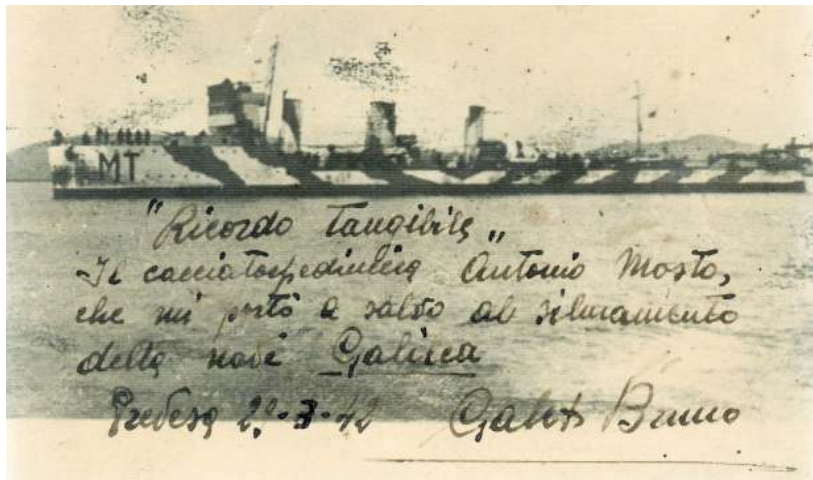 MT
"Ricordo Tangibile„
Il cacciatorpediniere Antonio Mosto,
che mi portò a salvo al siluramento
della nave Galilea
Prevesa Bruno